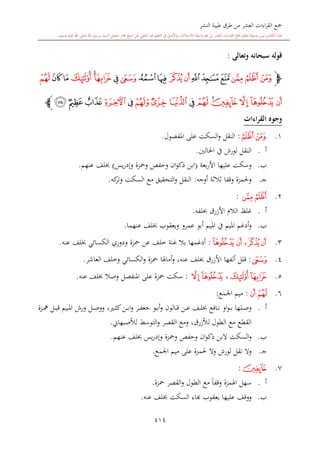 جمع القراءات العشر من طرق طيبة النشر
قوله سبحانه وتعالى :
﴿ وَمَنْ أَظْلَمُ مِمَّن مَّنَعَ مَسَٰجِدَ ٱللَّهِ أَن يُذْكَرَ فِيهَا ٱسْمُهُۥ وَسَعَىٰ فِى خَرَابِهَآ أُو۟لَٰٓئِكَ مَا كَانَ لَهُمْ
أَن يَدْخُلُوهَآ إِلَّا خَآئِفِينَ لَهُمْ فِى ٱلدُّنْيَا خِزْىٌ وَلَهُمْ فِى ٱلْءَاخِرَةِ عَذَابٌ عَظِيمٌ ﴾
وجوه القراءات
١. وَمَنْ أَظْلَمُ : النقل والسكت على المفصول.
أ . النقل لورش في الحالين.
ب. وسكت عليها الأربعة (ابن ذكوان وحفص وحمزة وإدريس) بخلف عنهم.
جـ. ولحمزة وقفا ثلاثة أوجه: النقل والتحقيق مع السكت وتركه.
٢. أَظْلَمُ مِمَّن :
أ . غلظ اللام الأزرق بخلفه.
ب. وأدغم الميم في الميم أبو عمرو ويعقوب بخلف عنهما.
٣. أَن يُذْكَرَ، أَن يَدْخُلُوهَآ : أدغمها بلا غنة خلف عن حمزة ودوري الكسائي بخلف عنه.
٤. وَسَعَىٰ : قلل ألفها الأزرق بخلف عنه، وأمالها حمزة والكسائي وخلف العاشر.
٥. خَرَابِهَآ أُو۟لَٰٓئِكَ ، يَدْخُلُوهَآ إِلَّا : سكت حمزة على المنفصل وصلا بخلف عنه.
٦. لَهُمْ أَن : ميم الجمع:
أ . وصلها بواو نافع بخلف عن قالون وأبو جعفر وابن كثير، ووصل ورش الميم قبل همزة
القطع مع الطول للأزرق، ومع القصر والتوسط للأصبهاني.
ب. والسكت لابن ذكوان وحفص وحمزة وإدريس بخلف عنهم.
جـ. ولا نقل لورش ولا لحمزة على ميم الجمع.
٧. خَآئِفِينَ :
أ . سهل الهمزة وقفاً مع الطول والقصر حمزة.
ب. ووقف عليها يعقوب بهاء السكت بخلف عنه.
٤١٤